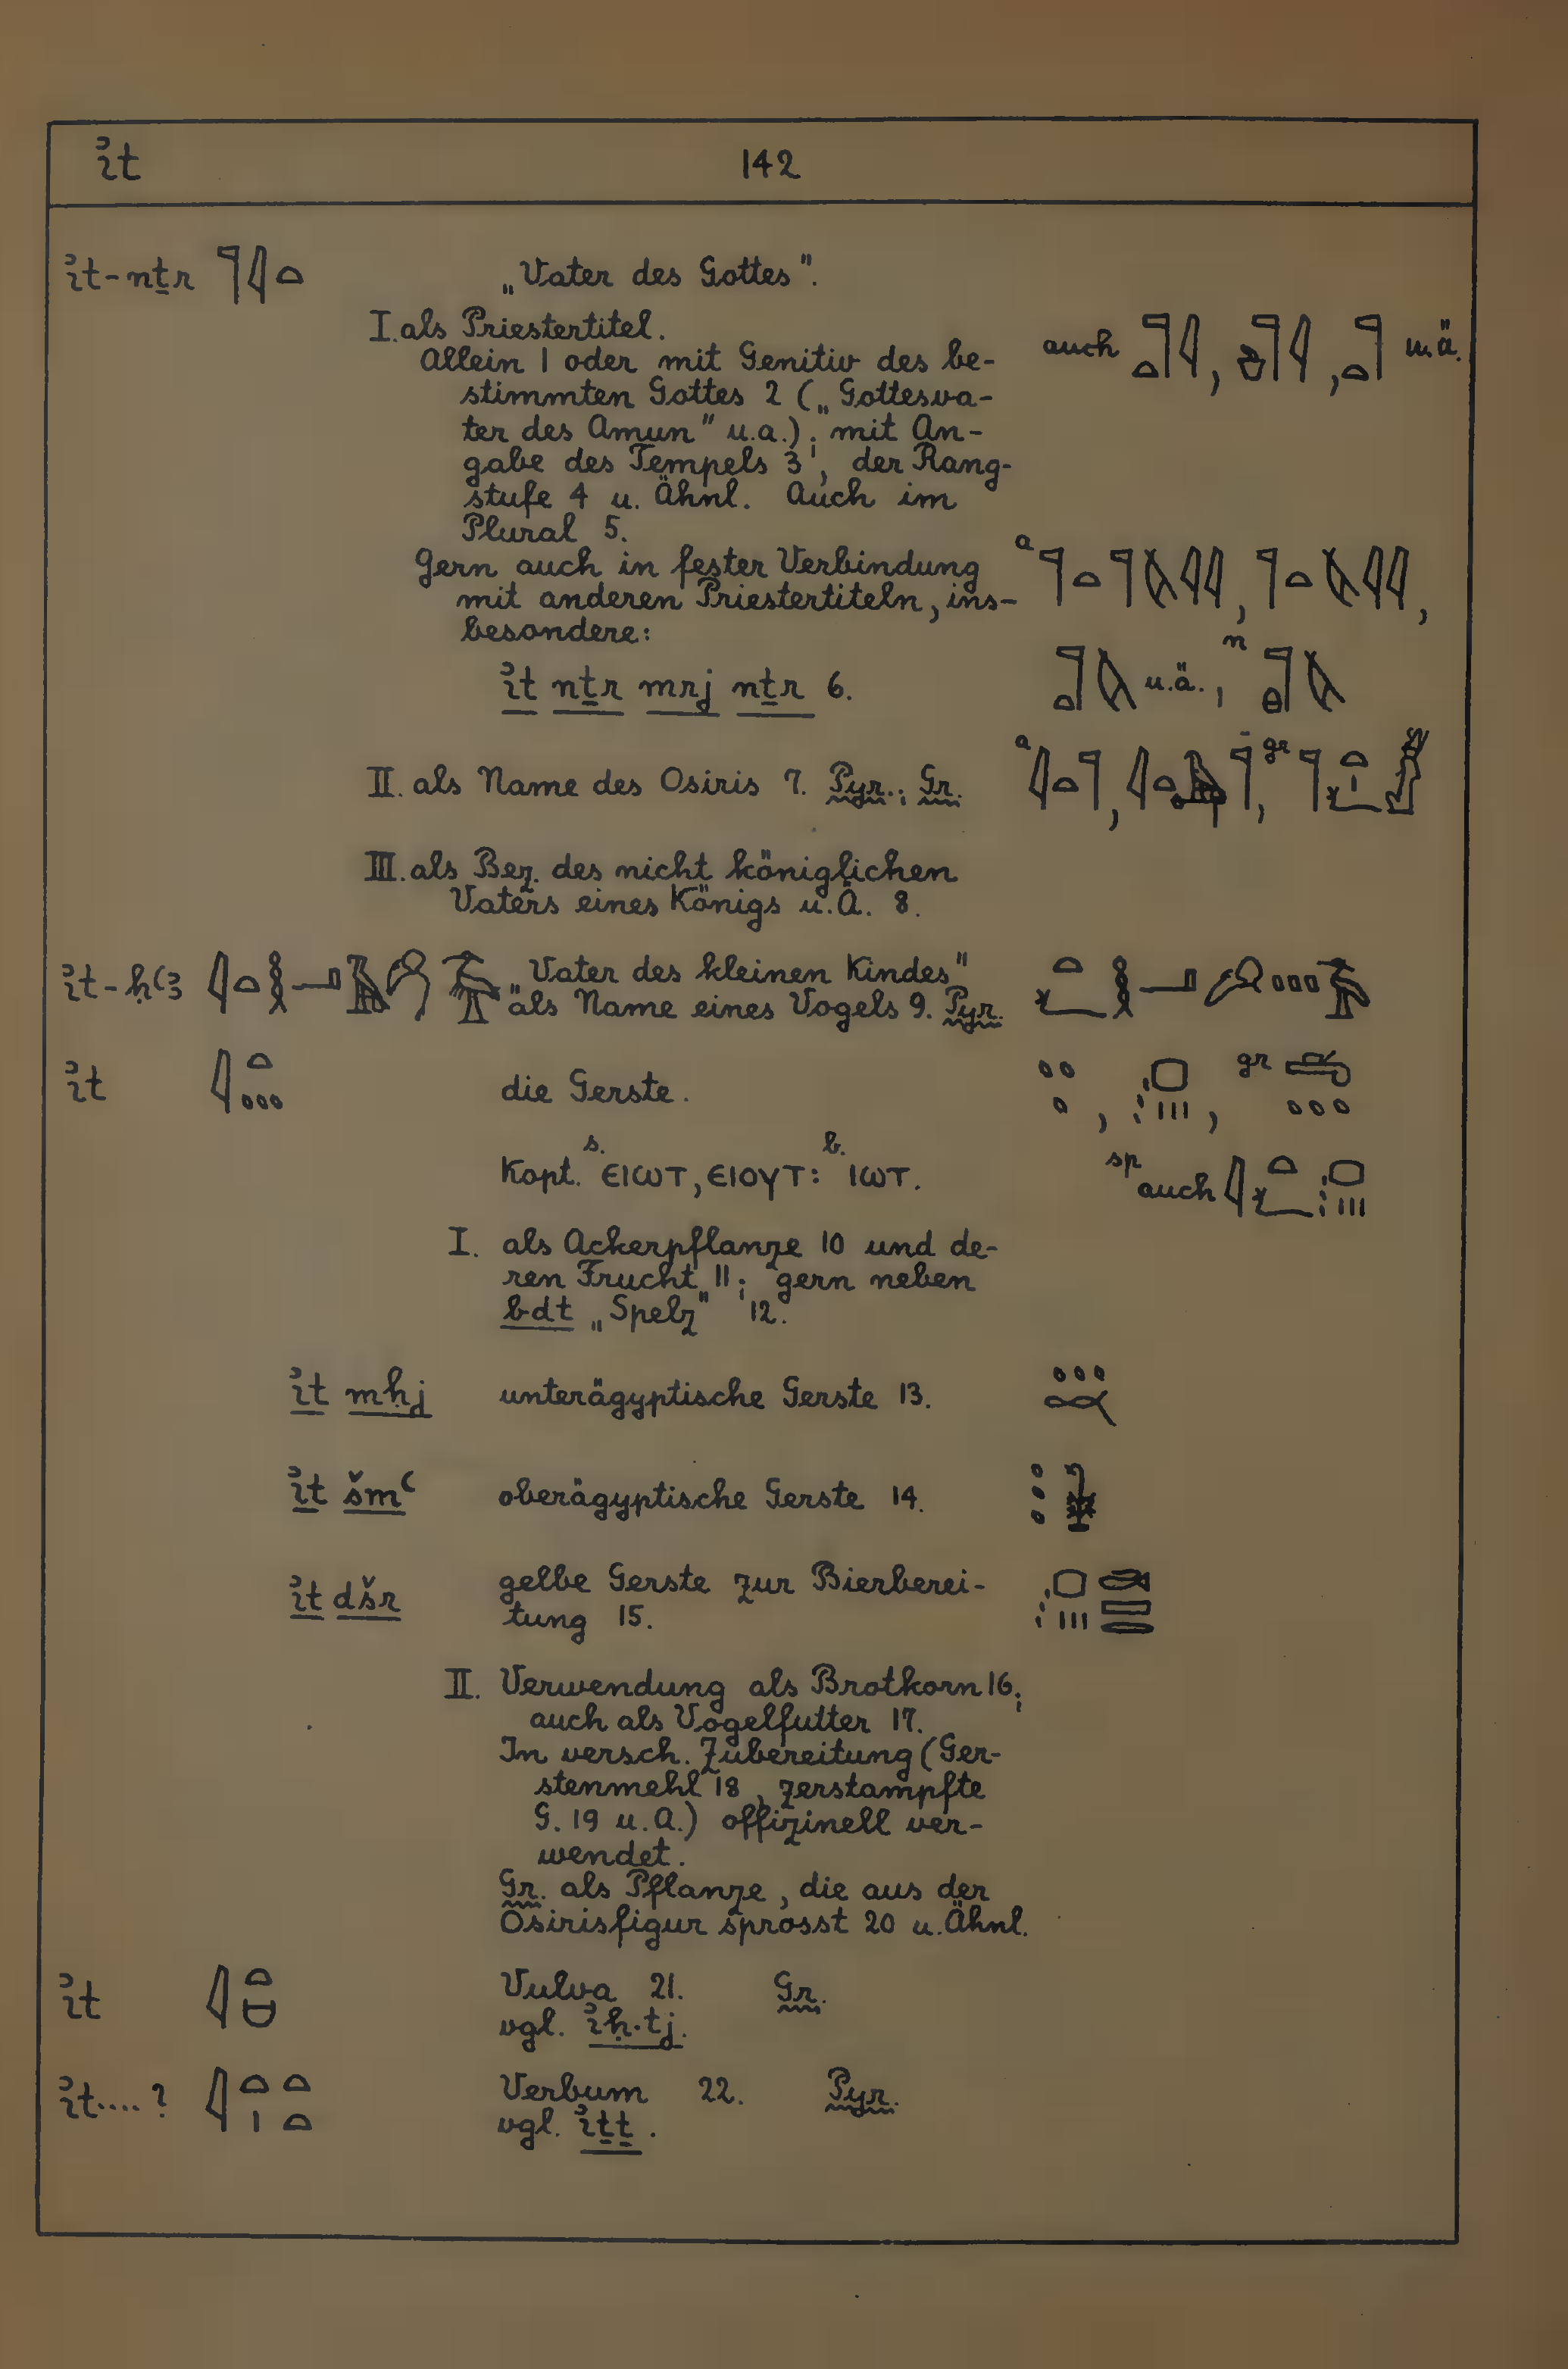 ỉt 142
ỉt-nṯr 𓊹𓇋𓏏 „Vater des Gottes".
I. als Priestertitel.
Allein 1 oder mit Genitiv des be-
auch 𓊹𓏏𓇋, 𓊹𓇋, 𓊹𓏏 u.ä.
stimmten Gottes 2 („Gottesva-
ter des Amun" u.a.); mit An-
gabe des Tempels 3, der Rang-
stufe 4 u. Ähnl. Auch im
Plural 5.
Gern auch in fester Verbindung
a 𓊹𓏏𓊹𓌻𓇋𓇋, 𓊹𓏏𓌻𓇋𓇋,
mit anderen Priestertiteln, ins-
besondere:
ỉt nṯr mrj nṯr 6.
𓊹𓏏𓌻 u.ä., n 𓊹𓌻
II. als Name des Osiris 7. Pyr.; Gr.
a 𓇋𓏏𓊹, 𓇋𓏏𓊹, gr 𓊹𓏏𓏤𓆑
III. als Bez. des nicht königlichen
Vaters eines Königs u.Ä. 8.
ỉt-ḥꜥꜣ 𓇋𓏏𓎛𓂝𓄿 „Vater des kleinen Kindes"
als Name eines Vogels 9. Pyr.
𓏏𓆑𓎛𓂝
ỉt 𓇋𓏏𓌽 die Gerste.
gr
Kopt. s. ⲉⲓⲱⲧ, ⲉⲓⲟⲩⲧ: b. ⲓⲱⲧ.
sp auch 𓇋𓏏𓆑
I. als Ackerpflanze 10 und de-
ren Frucht 11; gern neben
bdt „Spelz" 12.
ỉt mḥj unterägyptische Gerste 13.
ỉt šmꜥ oberägyptische Gerste 14.
ỉt dšr gelbe Gerste zur Bierberei-
tung 15.
II. Verwendung als Brotkorn 16;
auch als Vogelfutter 17.
In versch. Zubereitung (Ger-
stenmehl 18, zerstampfte
G. 19 u.A.) offizinell ver-
wendet.
Gr. als Pflanze, die aus der
Osirisfigur sprosst 20 u. Ähnl.
ỉt 𓇋𓏏 Vulva 21. Gr.
vgl. ỉḥ.tj.
ỉt....? 𓇋𓏏𓏤𓏏𓏏 Verbum 22. Pyr.
vgl. ỉṯṯ.